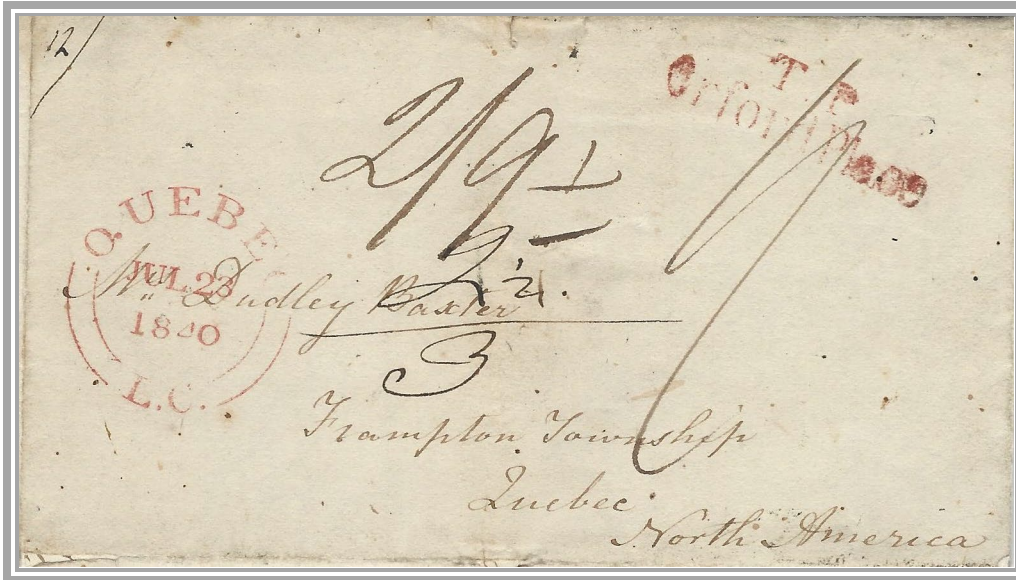 12/
T.P
Orford Place
2/9
1/
QUEBEC
JUL 23
1840
L.C.
Mr Dudley Baxter
2'4.
3
Frampton Township
Quebec
North America